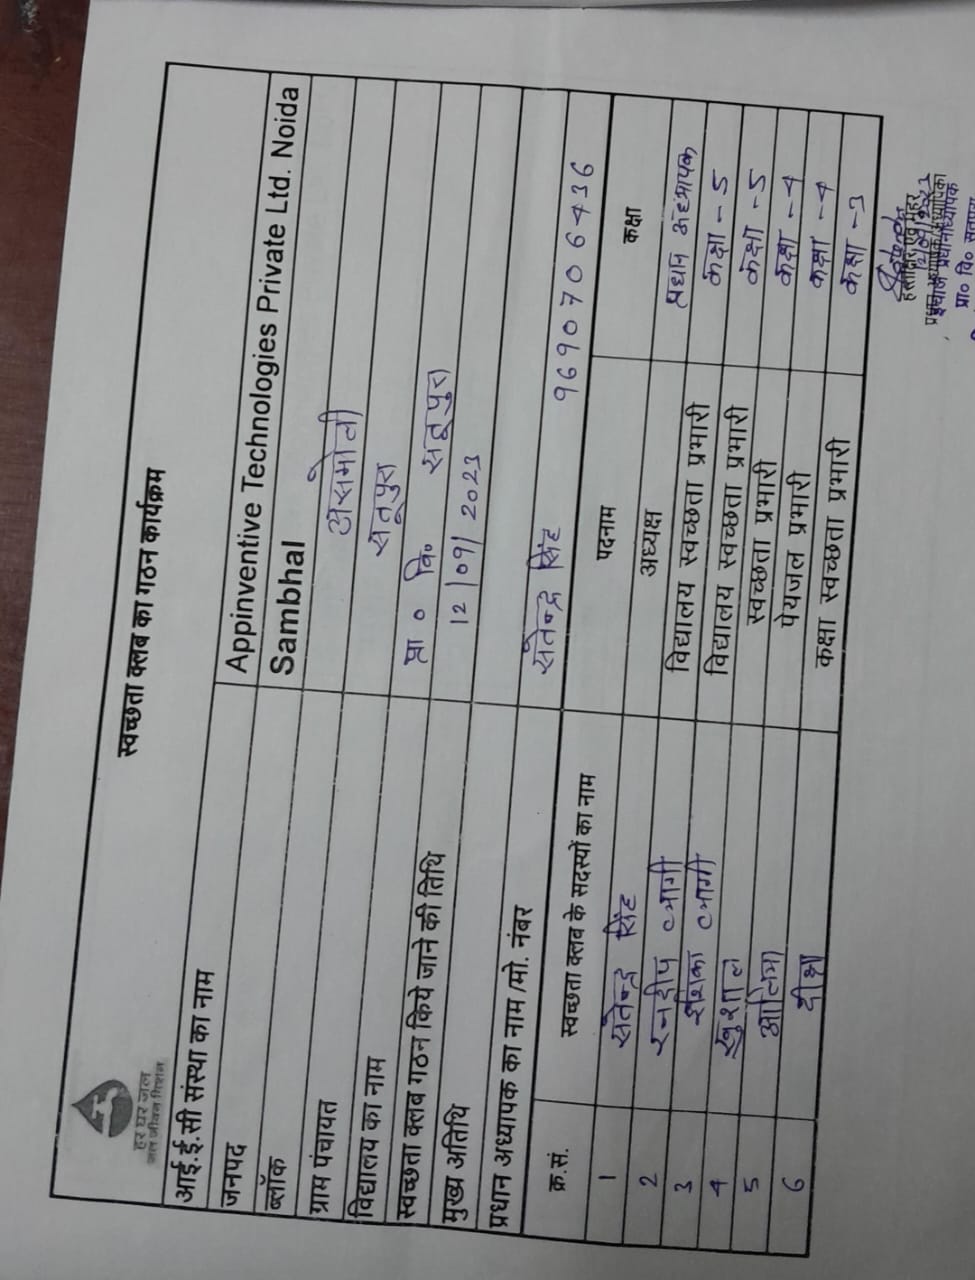 हर घर जल
जल जीवन मिशन
स्वच्छता क्लब का गठन कार्यक्रम
आई.ई.सी संस्था का नाम Appinventive Technologies Private Ltd. Noida
जनपद Sambhal
ब्लॉक असमोली
ग्राम पंचायत सतूपुरा
विद्यालय का नाम प्रा० वि० सतूपुरा
स्वच्छता क्लब गठन किये जाने की तिथि 12/09/2023
मुख्य अतिथि
प्रधान अध्यापक का नाम/मो. नंबर सतेन्द्र सिंह 9690706436
क्र.सं. स्वच्छता क्लब के सदस्यों का नाम पदनाम कक्षा
1 सतेन्द्र सिंह अध्यक्ष प्रधान अध्यापक
2 रनदीप त्यागी विद्यालय स्वच्छता प्रभारी कक्षा - 5
3 इशिका त्यागी विद्यालय स्वच्छता प्रभारी कक्षा - 5
4 खुशाल स्वच्छता प्रभारी कक्षा - 4
5 आलिया पेयजल प्रभारी कक्षा - 4
6 दीक्षा कक्षा स्वच्छता प्रभारी कक्षा - 3
हस्ताक्षर एवं मुहर
प्रधान अध्यापक/अध्यापिका
इंचार्ज प्रधानाध्यापक
प्रा० वि०